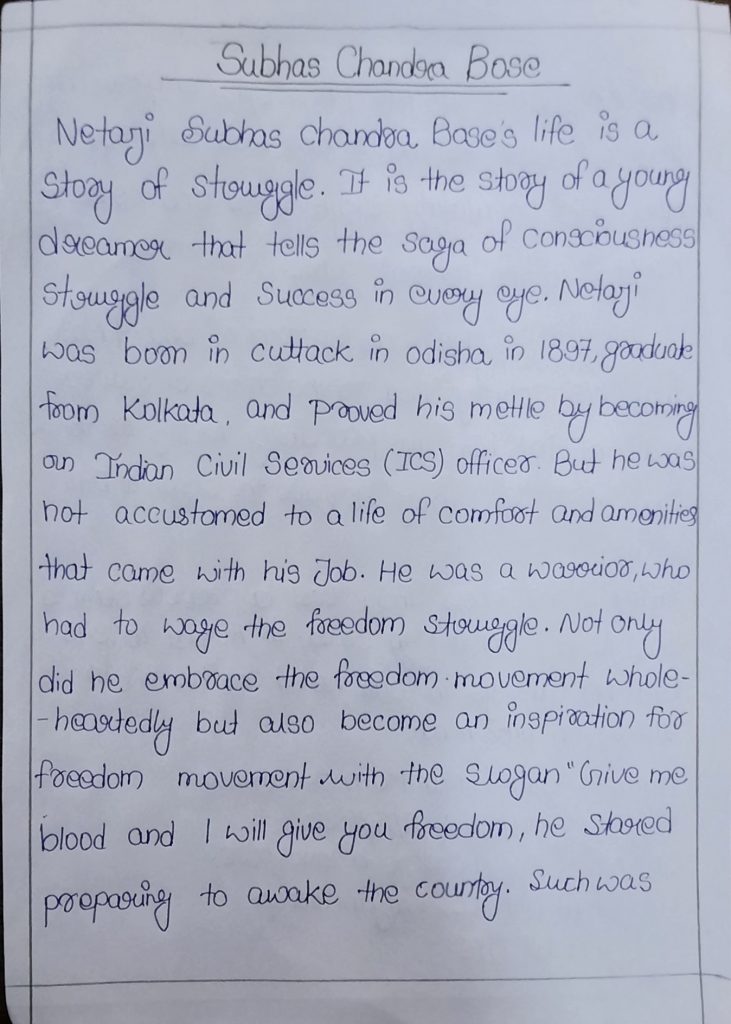 Subhas Chandra Bose
Netaji Subhas Chandra Base's life is a
Story of struggle. It is the story of a young
dreamer that tells the saga of consciousness
Struggle and Success in every eye. Netaji
was born in cuttack in odisha in 1897, graduate
from Kolkata, and proved his mettle by becoming
an Indian Civil Services (ICS) officer. But he was
not accustomed to a life of comfort and amenities
that came with his Job. He was a warrior, who
had to wage the freedom struggle. Not only
did he embrace the freedom movement whole-
-heartedly but also become an inspiration for
freedom movement with the slogan "Give me
blood and I will give you freedom, he stared
preparing to awake the country. Such was